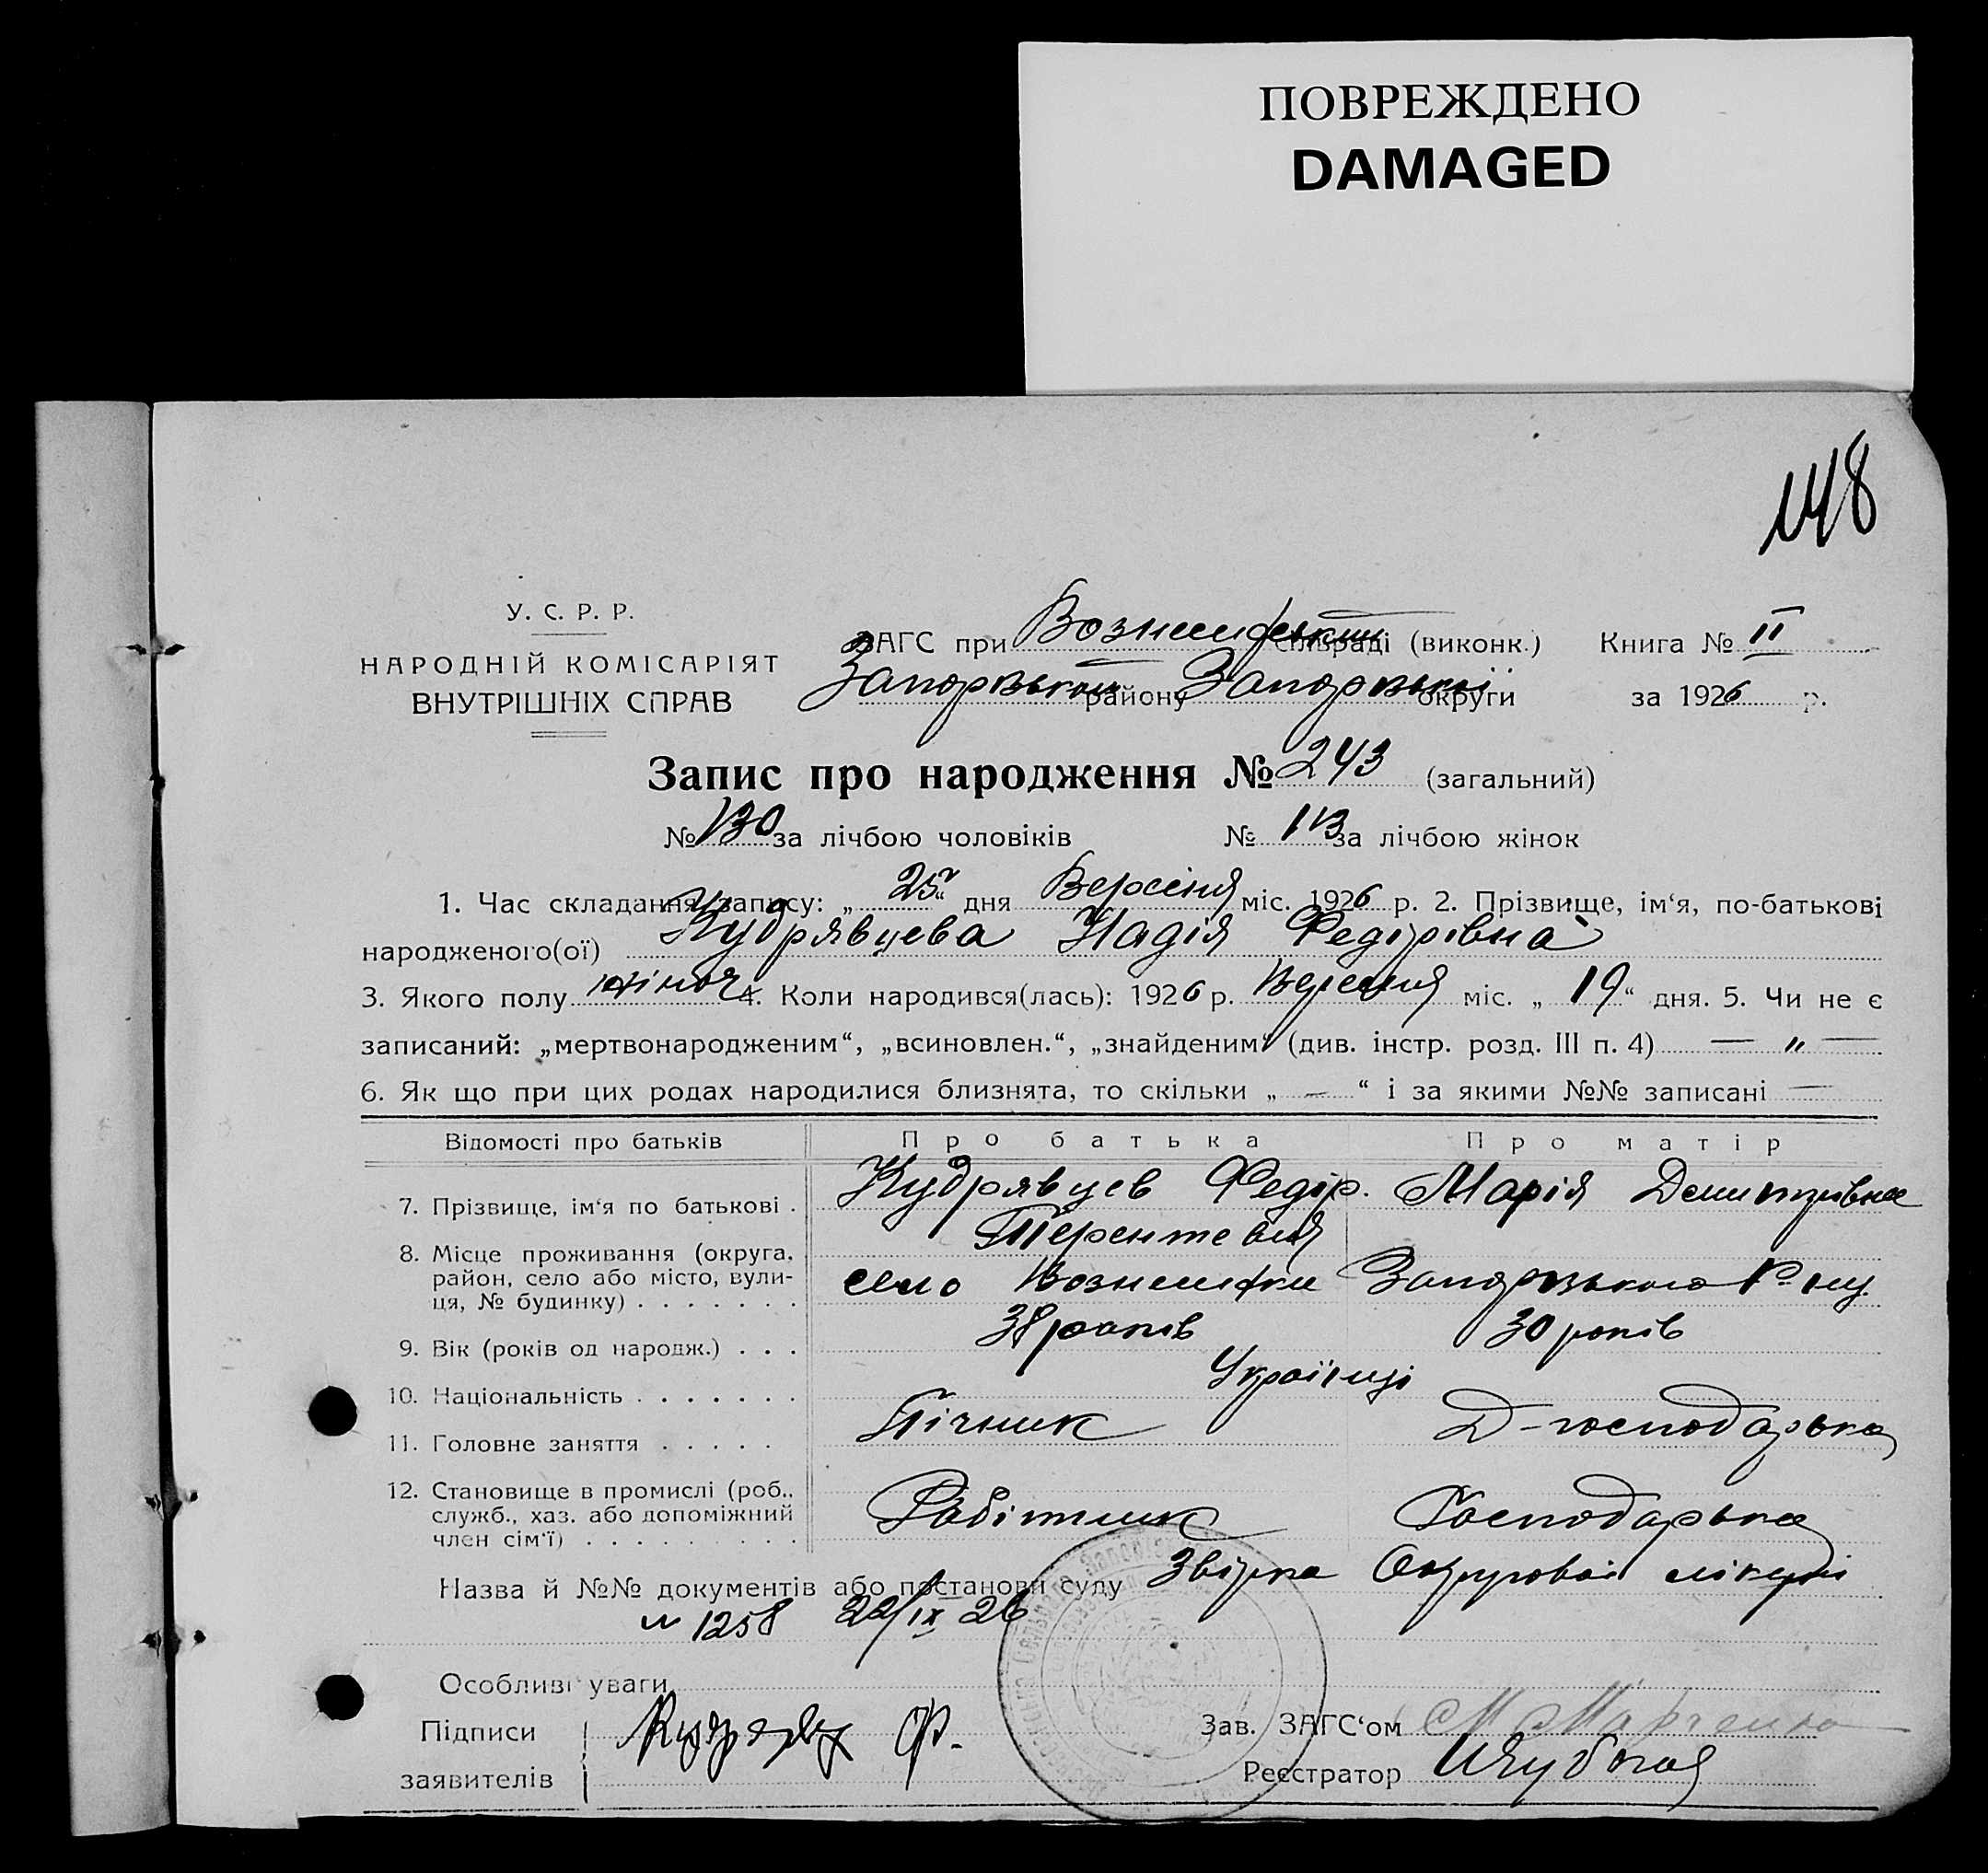 ПОВРЕЖДЕНО
DAMAGED
148
У. С. Р. Р.
НАРОДНІЙ КОМІСАРІЯТ
ВНУТРІШНІХ СПРАВ
ЗАГС при сільраді (виконк.) Книга № II
району округи за 1926 р.
Запис про народження № 243 (загальний)
№ 130 за лічбою чоловіків № 113 за лічбою жінок
1. Час складання запису: „ 25 “ дня міс. 1926 р. 2. Прізвище, ім‘я, по-батькові
народженого(ої) Кудрявцева Надія Федірівна
3. Якого полу жіноч 4. Коли народився(лась): 1926 р. Вересня міс. „ 19 “ дня. 5. Чи не є
записаний: „мертвонародженим“, „всиновлен.“, „знайденим“ (див. інстр. розд. III п. 4) — „ —
6. Як що при цих родах народилися близнята, то скільки „ — “ і за якими №№ записані —
Відомості про батьків Про батька Про матір
7. Прізвище, ім‘я по батькові . Кудрявцев Федір. Марія Демитрівна
8. Місце проживання (округа, район, село або місто, вулиця, № будинку) . . . . . . . село
9. Вік (років од народж.) . . . 38 років 30 років
10. Національність . . . . . . . Українці
11. Головне заняття . . . . . Пічник Д-господарька
12. Становище в промислі (роб., служб., хаз. або допоміжний член сім‘ї) . . . . . . . . . Робітник Господарька
Назва й №№ документів або постанови суду
№ 1258 22/IX 26
Особливі уваги
Підписи
заявителів
Зав. ЗАГС‘ом М Марченко
Реєстратор